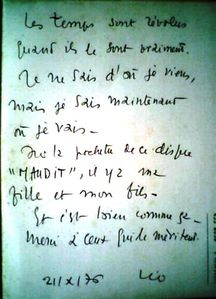 Les temps sont révolus
quand ils le sont vraiment.
Je ne sais d'où je viens,
mais je sais maintenant
où je vais -
Sur la pochette de ce disque
"MAUDIT", il y a ma
fille et mon fils -
Et c'est bien comme ça -
Merci à ceux qui le méritent.
21/X/76 Léo